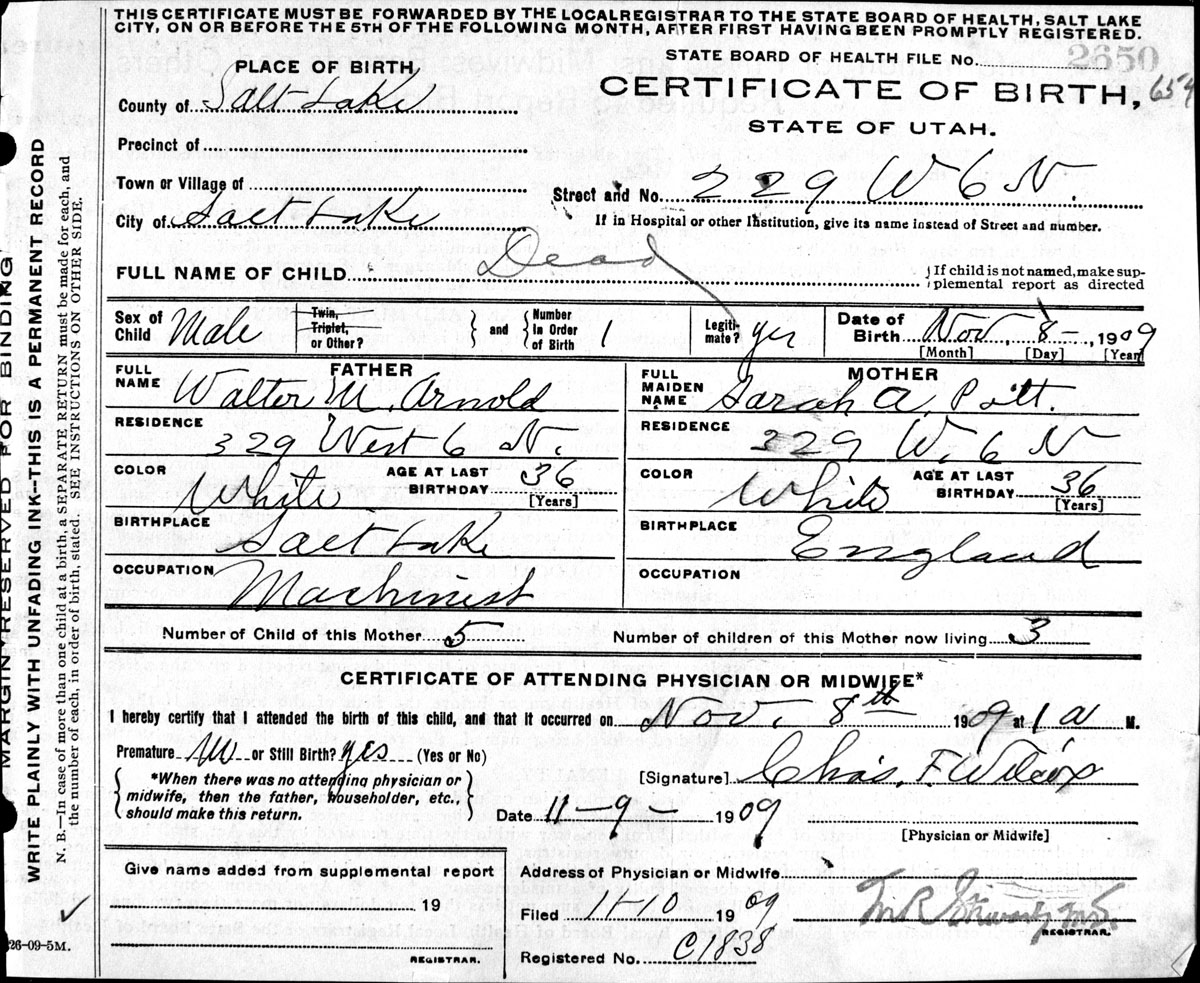 THIS CERTIFICATE MUST BE FORWARDED BY THE LOCAL REGISTRAR TO THE STATE BOARD OF HEALTH, SALT LAKE
CITY, ON OR BEFORE THE 5TH OF THE FOLLOWING MONTH, AFTER FIRST HAVING BEEN PROMPTLY REGISTERED.
STATE BOARD OF HEALTH FILE No. 2650
PLACE OF BIRTH
CERTIFICATE OF BIRTH, 654
County of Salt Lake
STATE OF UTAH.
Precinct of
Town or Village of
Street and No. 229 W 6 N.
City of Salt Lake
If in Hospital or other Institution, give its name instead of Street and number.
Dead
FULL NAME OF CHILD
If child is not named, make supplemental report as directed
Sex of Child Male
Twin, Triplet, or Other?
and
Number In Order of Birth 1
Legitimate? yes
Date of Birth Nov. 8 - 1909
[Month] [Day] [Year]
FATHER
FULL NAME Walter M. Arnold
RESIDENCE 329 West 6 N.
COLOR White
AGE AT LAST BIRTHDAY 36
[Years]
BIRTHPLACE Salt Lake
OCCUPATION Machinist
MOTHER
FULL MAIDEN NAME Sarah A. Pitt.
RESIDENCE 329 W. 6 N
COLOR White
AGE AT LAST BIRTHDAY 36
[Years]
BIRTHPLACE England
OCCUPATION
Number of Child of this Mother 5
Number of children of this Mother now living 3
CERTIFICATE OF ATTENDING PHYSICIAN OR MIDWIFE*
I hereby certify that I attended the birth of this child, and that it occurred on Nov. 8th 1909 at 1 a M.
Premature or Still Birth? yes (Yes or No)
*When there was no attending physician or
midwife, then the father, householder, etc.,
should make this return.
[Signature] Chas. F. Wilcox
Date 11-9- 1909
[Physician or Midwife]
Give name added from supplemental report
19
REGISTRAR.
Address of Physician or Midwife
Filed 11-10 1909
REGISTRAR.
Registered No. C1838
26-09-5M.
MARGIN RESERVED FOR BINDING
WRITE PLAINLY WITH UNFADING INK--THIS IS A PERMANENT RECORD
N. B.—In case of more than one child at a birth, a SEPARATE RETURN must be made for each, and
the number of each, in order of birth, stated. SEE INSTRUCTIONS ON OTHER SIDE.